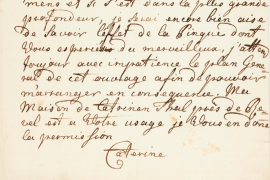 mens et si c'est dans la plus grande
profondeur, je serai encore bien aise
de savoir l'effet de la Pinque dont
Vous esperiés du merveilleux, j'atten
toujour avec impatience le plan General
de cet ouvrage afin de pouvoir
m'arranger en consequence. Ma
Maison de Catrinen Thal près de Re-
vel est a Votre usage je Vous en donne
la permission
Caterine